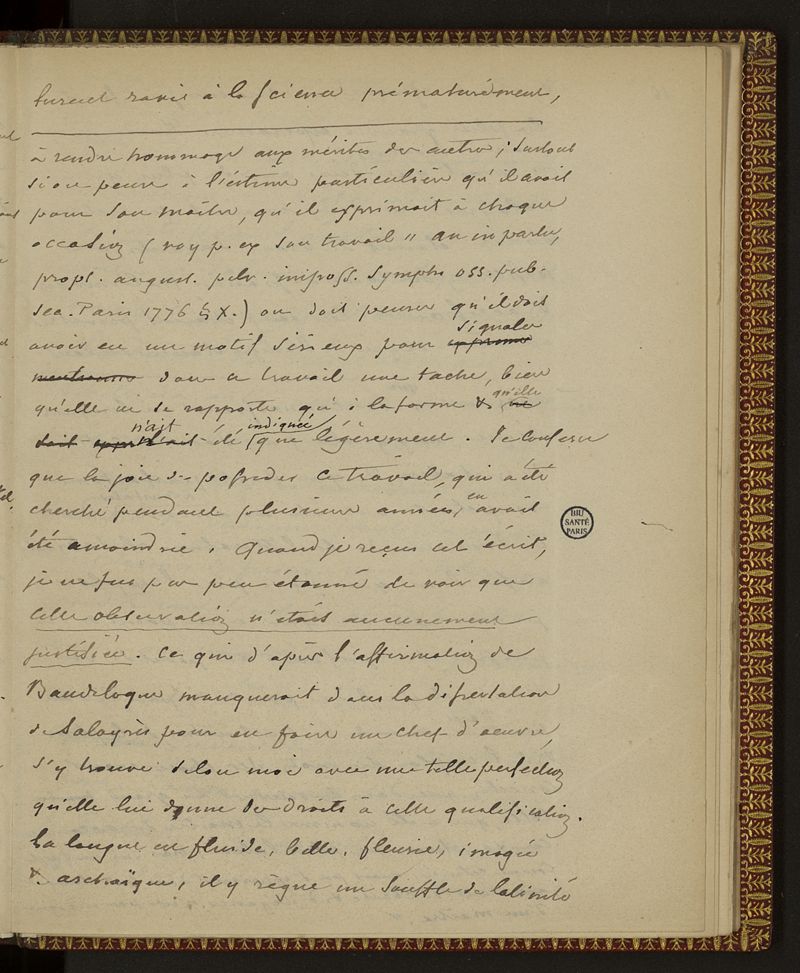 furent ravis à la science prématurément,
à rendre hommage aux mérites des autres; surtout
si on pense à l'estime particulière qu'il avait
pour son maître, qu'il exprimait à chaque
occasion (voy p. ex son travail " an in partu,
propt. angust. pelv. imposs. symphs oss. pub.
sea. Paris 1776 § X.) on doit penser qu'il doit
signaler
avoir eu un motif sérieux pour exprimer
mentionner dans ce travail une tache, bien
qu'elle ne se rapporte qu'à la forme & qu'elle ne
n'ait indiquée
soit était été que légèrement. Je confesse
que la joie de posséder ce travail, qui a été
cherché pendant plusieurs années, en avait
été amoindrie. Quand je reçus cet écrit,
je ne fus pas peu étonné de voir que
cette observation n'était aucunement
justifiée. Ce qui d'après l'affirmation de
Baudelocque manquerait dans la dissertation
de Solayrès pour en faire un chef d'oeuvre,
s'y trouve selon moi avec une telle perfection
qu'elle lui donne des droits à cette qualification.
La langue est fluide, belle, fleurie, imagée
& archaïque, il y règne un souffle de latinité
BIU
SANTÉ
PARIS